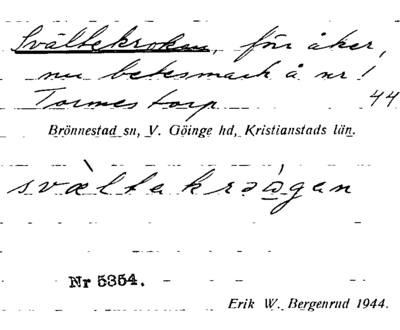 Svältekroken, förr åker,
nu betesmark å nr 1
Tormestorp 44
Brönnestad sn, V. Göinge hd, Kristianstads län.
svàltakrọ́gan
Nr 5354.
Erik W. Bergenrud 1944.